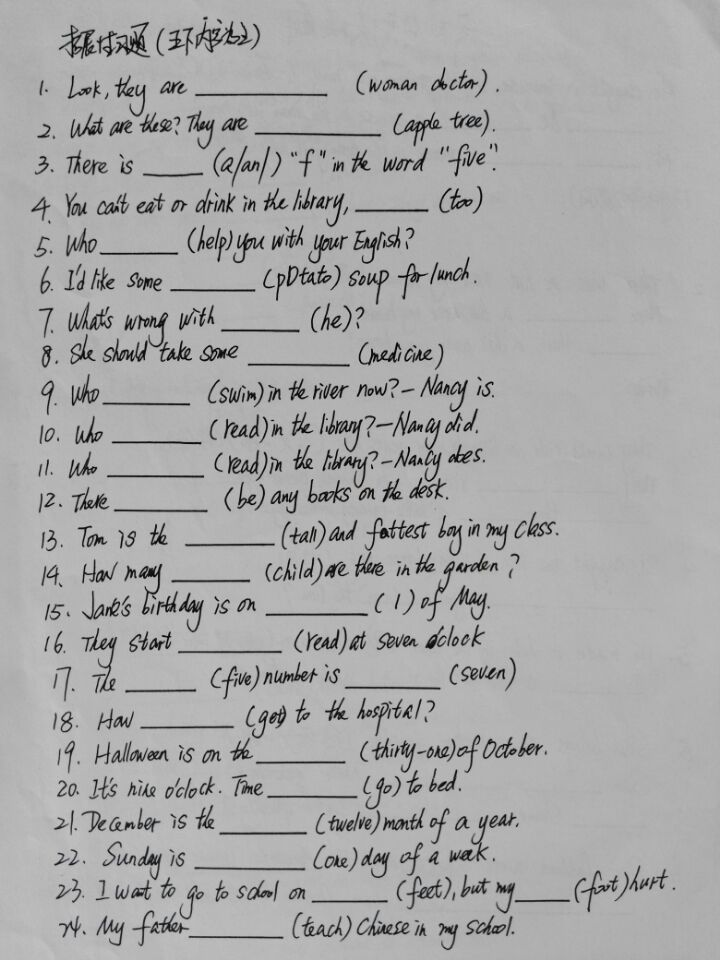 拓展性习题(五下内容为主)
1. Look, they are __________ (woman doctor).
2. What are these? They are __________ (apple tree).
3. There is _____ (a/an/) "f" in the word "five".
4. You can't eat or drink in the library, ______ (too)
5. Who ______ (help) you with your English?
6. I'd like some _______ (potato) soup for lunch.
7. What's wrong with ______ (he)?
8. She should take some ________ (medicine)
9. Who _______ (swim) in the river now? - Nancy is.
10. Who _______ (read) in the library? - Nancy did.
11. Who ________ (read) in the library? - Nancy does.
12. There ________ (be) any books on the desk.
13. Tom is the _______ (tall) and fattest boy in my class.
14. How many ______ (child) are there in the garden?
15. Jane's birthday is on ________ (1) of May.
16. They start ________ (read) at seven o'clock
17. The ______ (five) number is ________ (seven)
18. How ________ (get) to the hospital?
19. Halloween is on the _______ (thirty-one) of October.
20. It's nine o'clock. Time _______ (go) to bed.
21. December is the _______ (twelve) month of a year.
22. Sunday is ________ (one) day of a week.
23. I want to go to school on ______ (feet), but my ____ (foot) hurt.
24. My father ________ (teach) Chinese in my school.